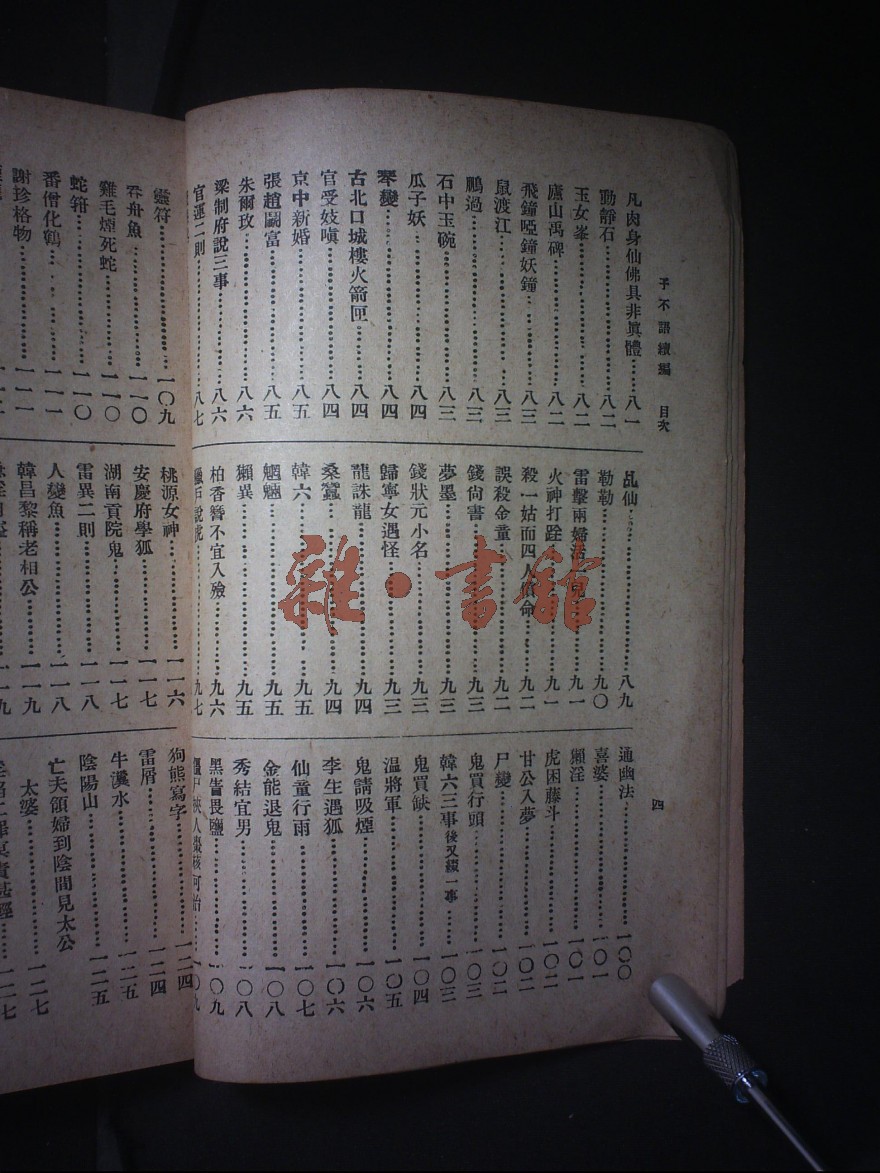 子不語續編 目次
四
凡肉身仙佛具非眞體……八一
動靜石……八二
玉女峯……八二
廬山禹碑……八二
飛鐘啞鐘妖鐘……八三
鼠渡江……八三
鵬過……八三
石中玉碗……八三
瓜子妖……八四
琴變……八四
古北口城樓火箭匣……八四
官受妓嗔……八四
京中新婚……八五
張趙鬭富……八五
朱爾玫……八六
梁制府說三事……八六
官運二則……八七
乩仙……八九
勒勒……九〇
雷擊兩婦活……九一
火神打跧……九一
殺一姑而四人償命……九二
誤殺金童……九二
錢尙書……九三
夢墨……九三
錢狀元小名……九三
歸寧女遇怪……九三
龍誅龍……九四
桑蠶……九四
韓六……九五
魍魎……九五
獺異……九五
柏香簪不宜入殮……九六
獵戶說虎……九七
通幽法……一〇〇
喜婆……一〇一
獺淫……一〇一
虎困藤斗……一〇二
甘公入夢……一〇二
尸變……一〇二
鬼買行頭……一〇三
韓六三事後又綴一事……一〇三
鬼買缺……一〇四
温將軍……一〇五
鬼請吸煙……一〇六
李生遇狐……一〇六
仙童行雨……一〇七
金能退鬼……一〇八
秀結宜男……一〇八
黑眚畏鹽……一〇九
一〇九
靈符……一〇九
吞舟魚……一一〇
雞毛煙死蛇……一一〇
蛇箱……一一〇
番僧化鶴……一一一
謝珍格物……一一一
桃源女神……一一六
安慶府學狐……一一七
湖南貢院鬼……一一七
雷異二則……一一八
人變魚……一一八
韓昌黎稱老相公……一一九
一一九
狗熊寫字……一二四
雷屑……一二四
牛瀵水……一二五
陰陽山……一二五
亡夫領婦到陰間見太公
太婆……一二七
一二七
雜·書館